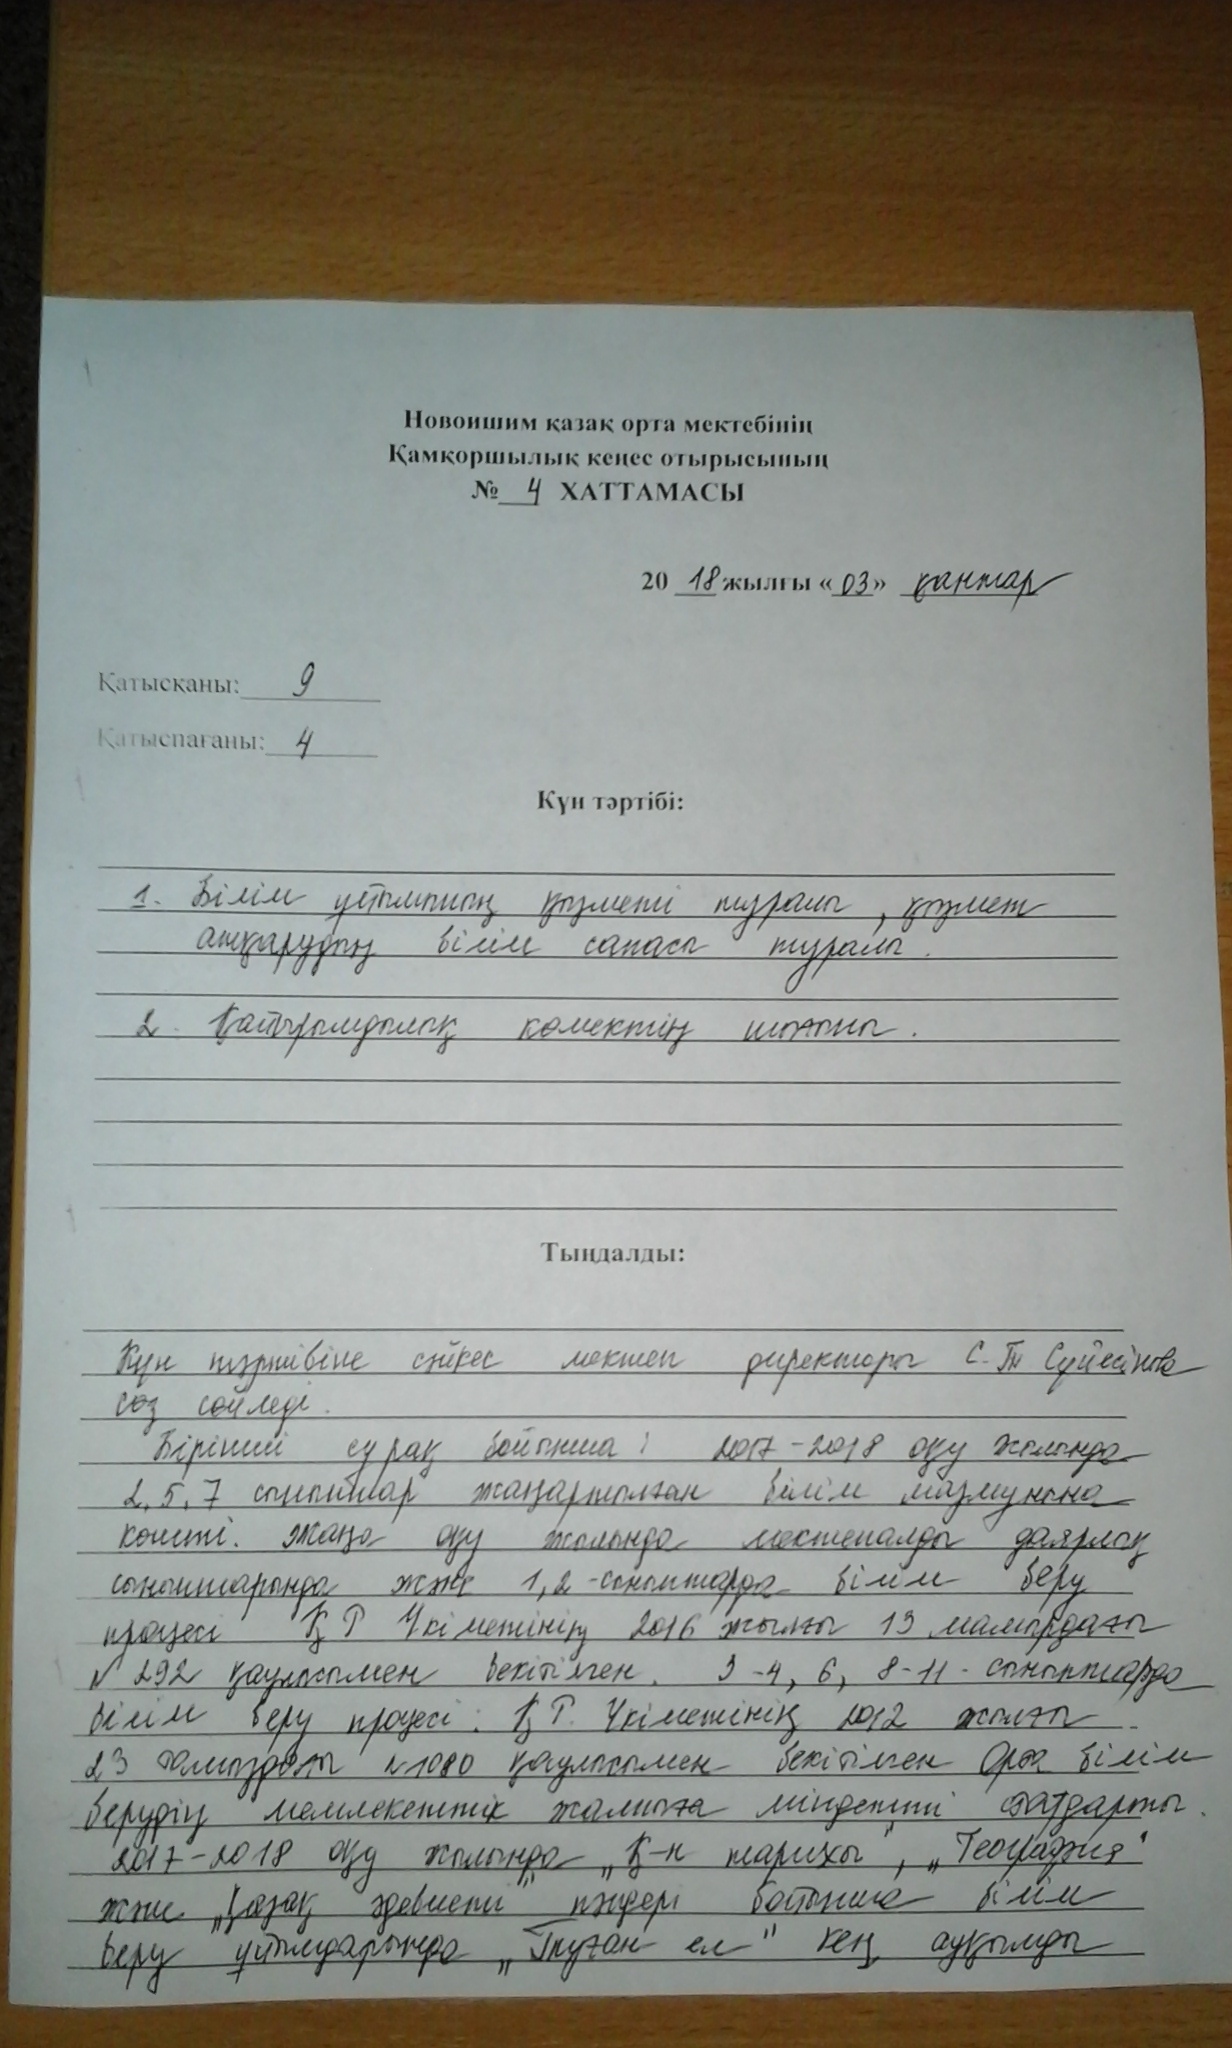 Новоишим қазақ орта мектебінің
Қамқоршылық кеңес отырысының
№ 4 ХАТТАМАСЫ
20 18 жылғы «03» қантар
Қатысқаны: 9
Қатыспағаны: 4
Күн тәртібі:
1. Білім ұйымының қызметі туралы, қызмет
атқарудың білім сапасы туралы.
2. Қайырымдылық көмектің шоты.
Тыңдалды:
Күн тәртібіне сәйкес мектеп директоры С.Т. Сүйесінова
сөз сөйледі.
Бірінші сұрақ бойынша: 2017-2018 оқу жылында
2, 5, 7 сыныптар жаңартылған білім мазмұнына
көшті. Жаңа оқу жылында мектепалды даярлық
сыныптарында және 1,2-сыныптарда білім беру
процесі ҚР Үкіметінің 2016 жылғы 13 мамырдағы
№ 292 қаулысымен бекітілген. 3-4, 6, 8-11-сыныптарда
білім беру процесі: ҚР. Үкіметінің 2012 жылғы
23 тамыздағы №1080 қаулысымен бекітілген Орта білім
берудің мемлекеттік жалпыға міндетті стандарты.
2017-2018 оқу жылында „Қ-н тарихы", „География"
және „Қазақ әдебиеті" пәндері бойынша білім
беру ұйымдарында „Туған ел" кең ауқымды